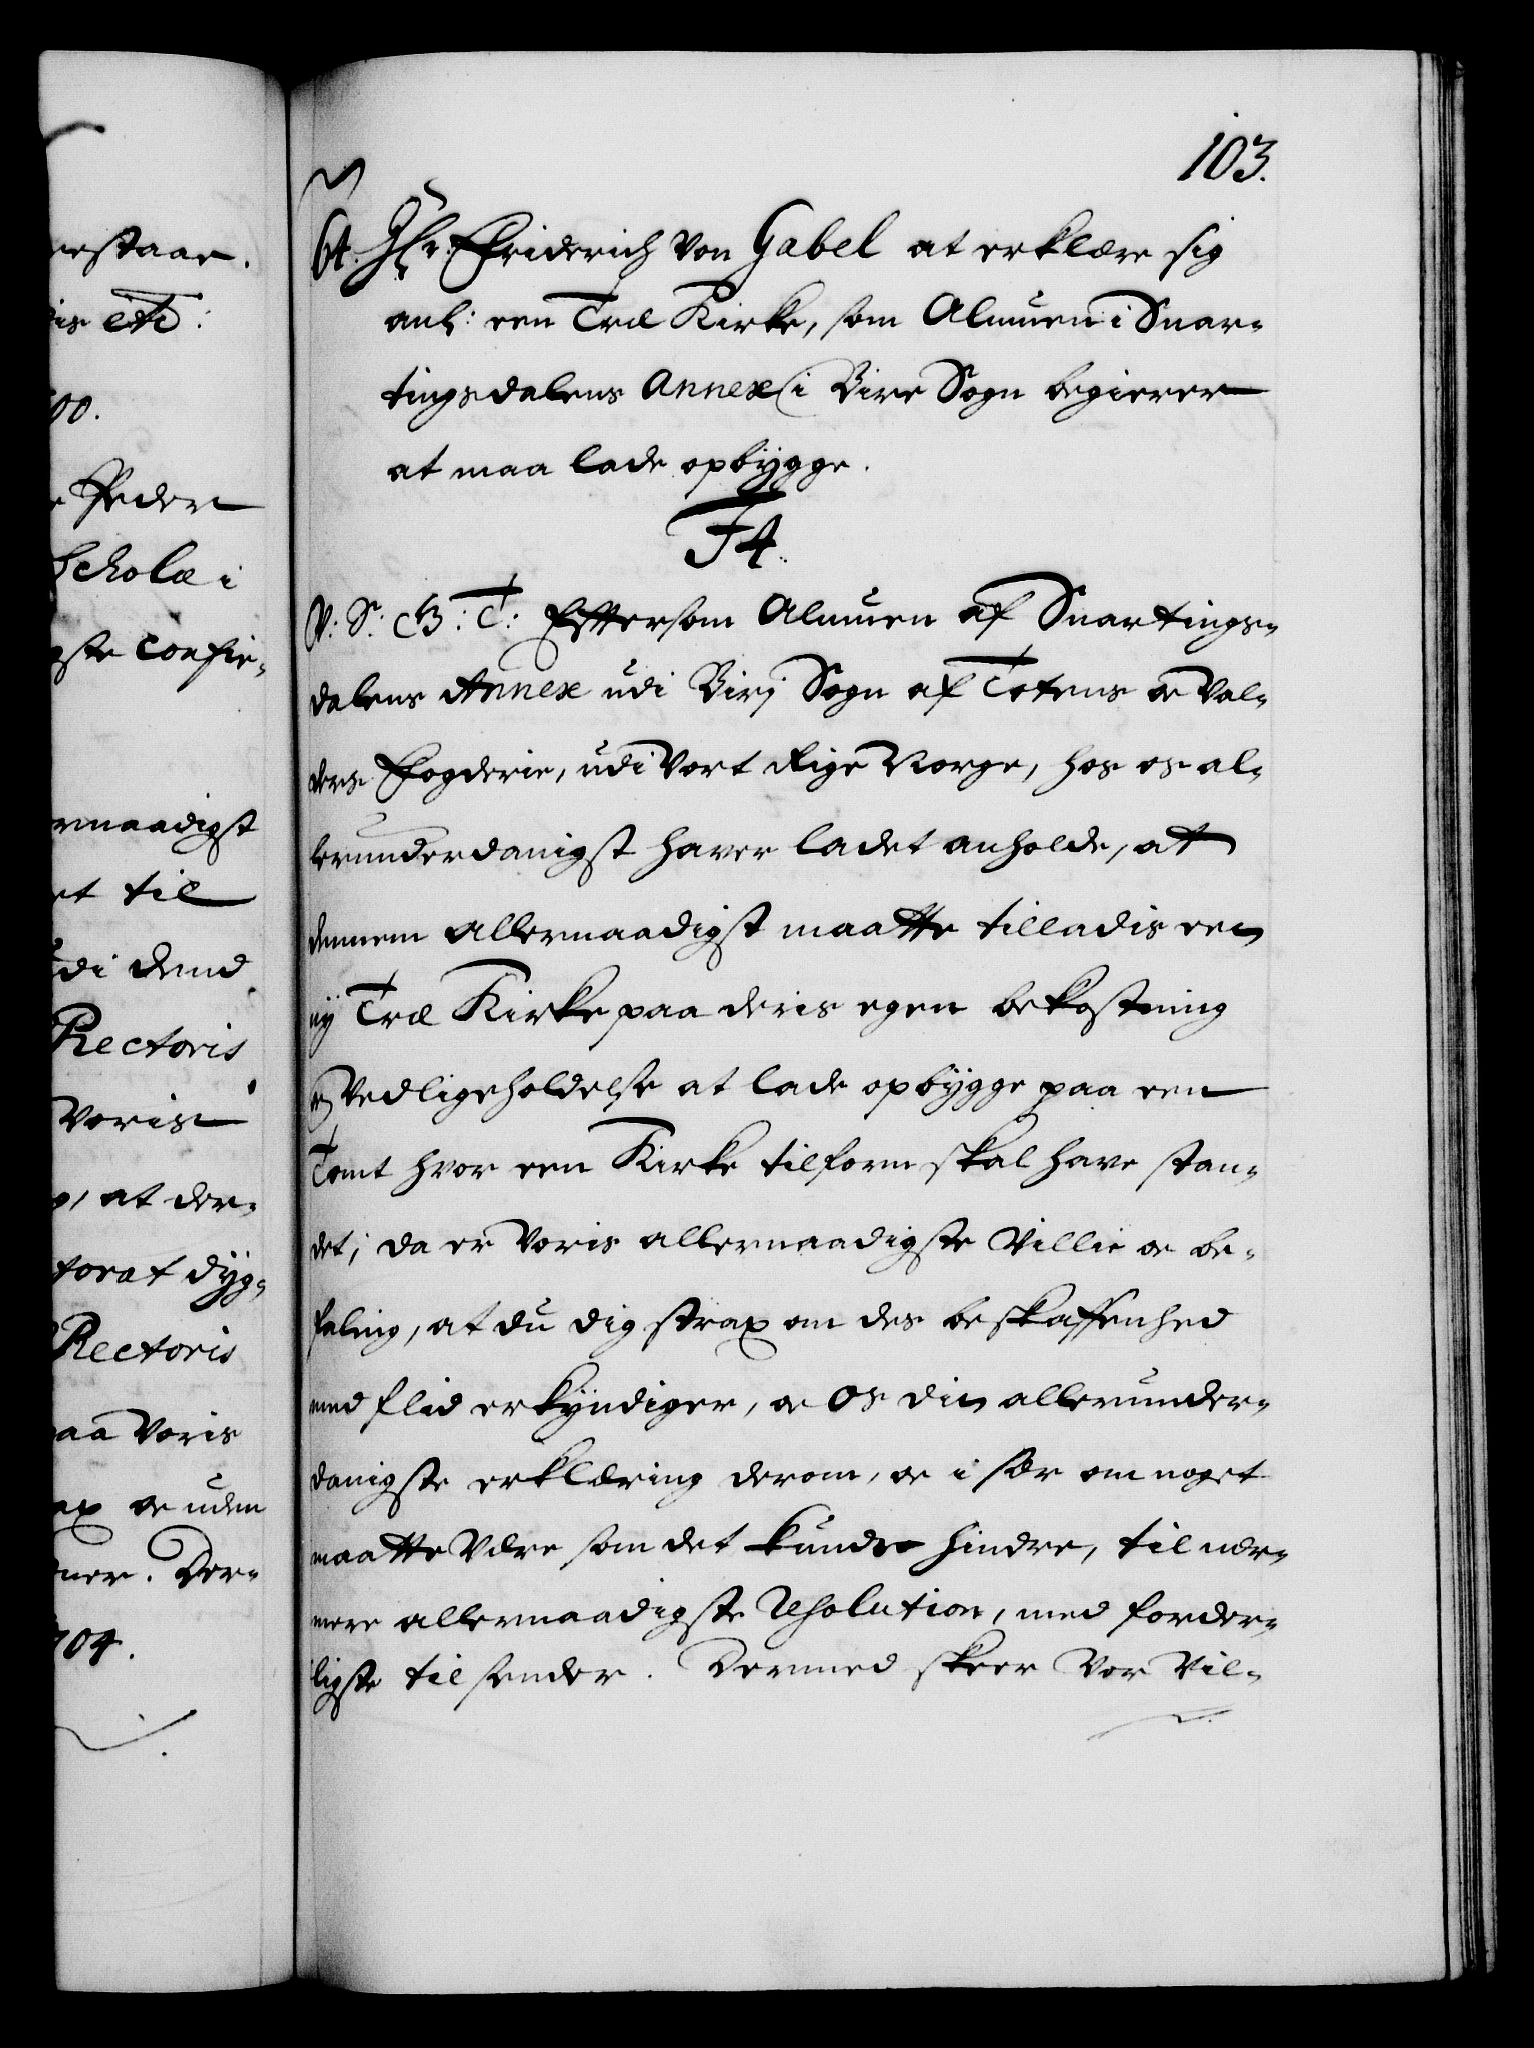 103.
64. Hr. Friderich von Gabel at erklære sig
anl: een Træ Kirke, som Almuen i Snar-
tingsdalens Annex i Bire Sogn begierer
at maa lade opbÿgge.
F4.
V: S: G: T: Eftersom Almuen af Snartings-
dalens Annex udi Biri Sogn af Totens oc Val-
ders Fogderie, udi Vort Rige Norge, hos os al-
lerunderdanigst haver ladet anholde, at
dennem allernaadigst maatte tilladis een
nÿ Træ Kirke paa deris egen bekostning
oc Vedligeholdelse at lade opbÿgge paa een
Tomt hvor een Kirke tilforn skal have stan-
det; da er Voris allernaadigste Villie oc be-
faling, at du dig strax om des beskaffenhed
med flid erkÿndiger, oc Os din allerunder-
danigste erklæring derom, oc i sær om noget
maatte være som det kunde hindre, til nær-
mere allernaadigste Resolution, med forder-
ligste tilsender. Dermed skeer Vor Vil-
erstaar.
00.
Peder
Scholæ i
gste confir-
rnaadigst
et til
udi dend
Rectoris
Voris
at der-
torat dÿg-
Rectoris
paa Voris
ax oc uden
ner. Der-
704.